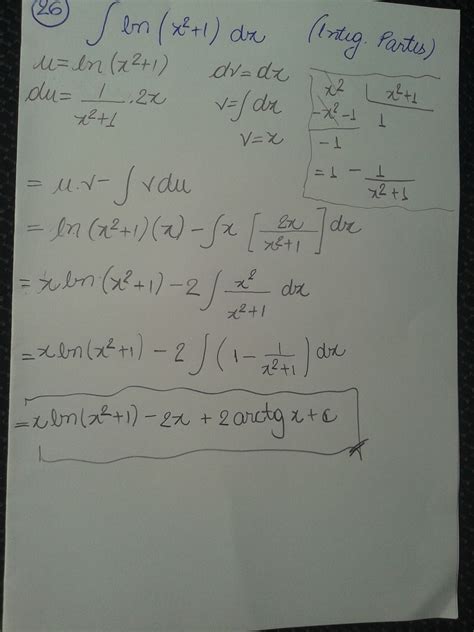 26 ∫ ln (x²+1) dx (Integ. Partes)
u = ln (x²+1) dv = dx
du = 1/(x²+1) · 2x v = ∫ dx
v = x
x² | x²+1
-x²-1 1
-1
= 1 - 1/(x²+1)
= u.v - ∫ v du
= ln (x²+1) (x) - ∫ x [2x/(x²+1)] dx
= x ln (x²+1) - 2 ∫ x²/(x²+1) dx
= x ln (x²+1) - 2 ∫ (1 - 1/(x²+1)) dx
= x ln (x²+1) - 2x + 2 arctg x + c